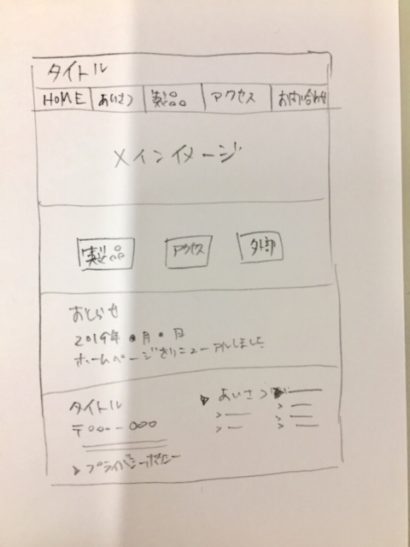 タイトル
HOME あいさつ 製品 アクセス お問い合わせ
メインイメージ
製品 アクセス 外部
おしらせ
2019年●月●日
ホームページをリニューアルしました
タイトル
〒000-000
> プライバシーポリシー
> あいさつ